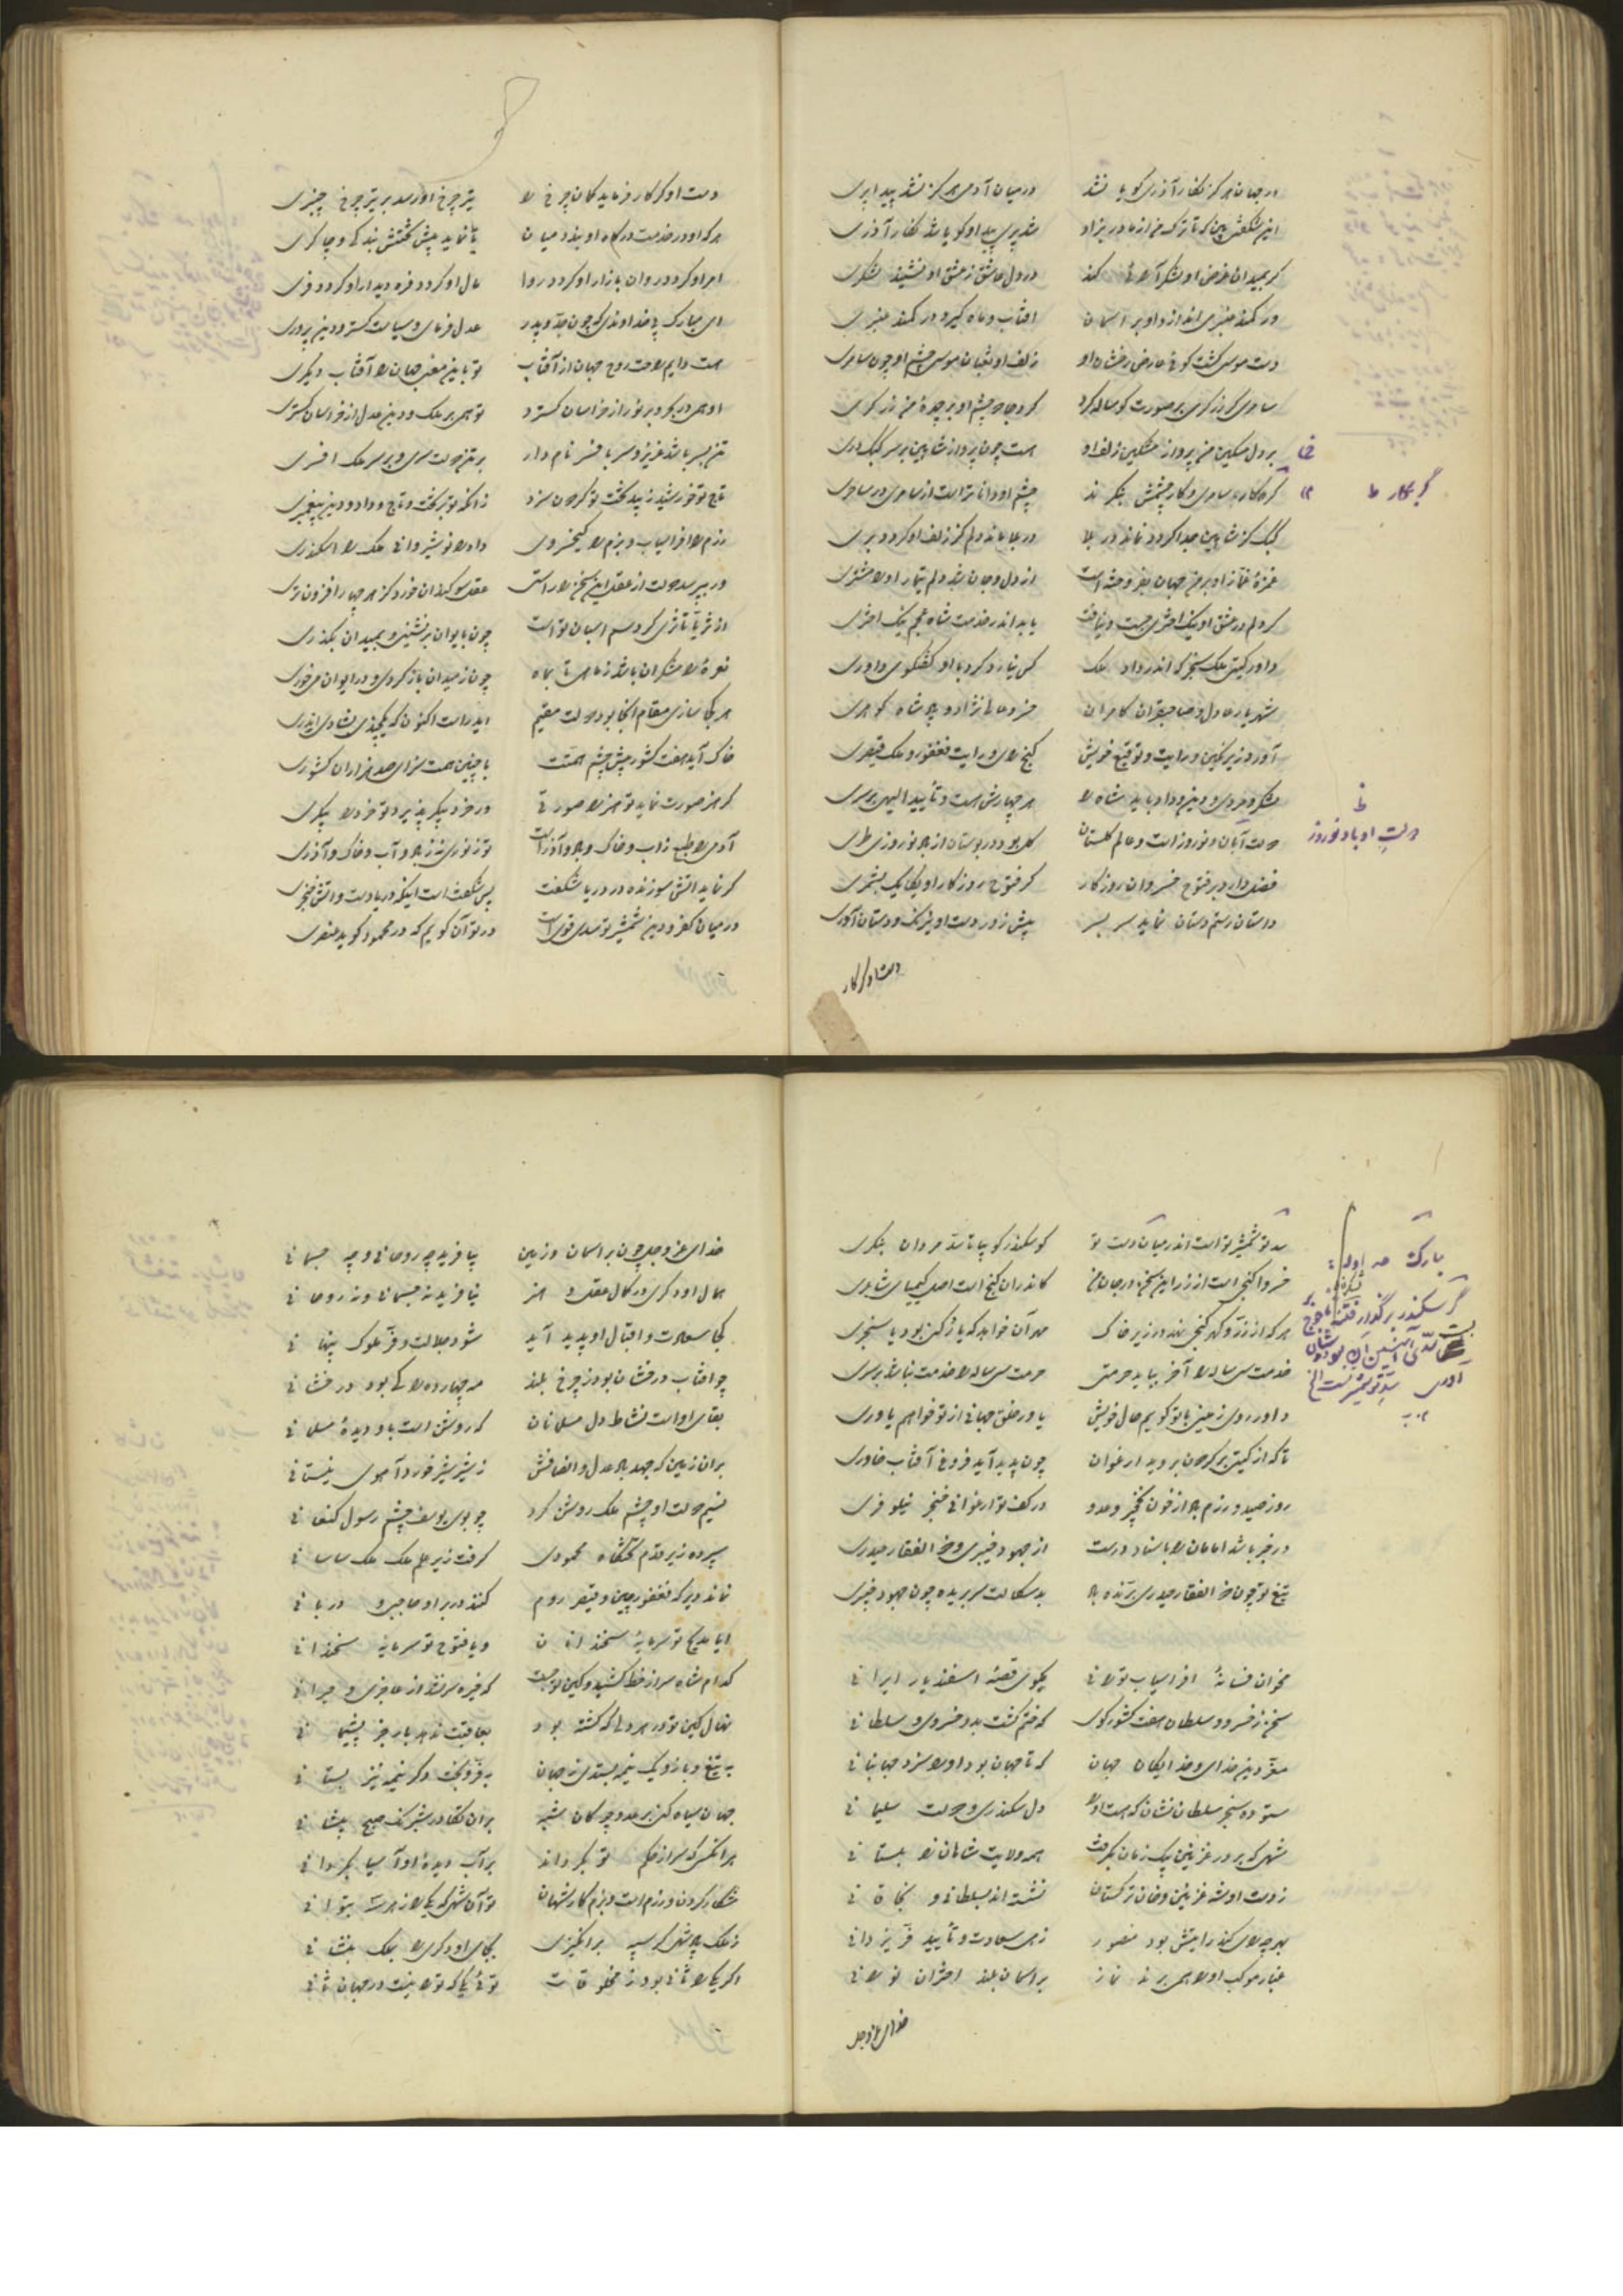 در جهان هرگز نگار آذری گویا نشد در میان آدمی هرگز نشد پیدا پری
این شگفتی بین که تا ترک من از مادر بزاد شد پری پیدا و گویا شد نگار آذری
گر بمیدان عارض او لشکر آرائی کند در دل عاشق ز عشق او نشیند لشکری
ور کمند عنبری اندازد او بر آسمان افتاب و ماه گیرد در کمند عنبری
دست موسی گشت گوئی عارض رخشان او زلف او ثعبان موسی چشم او چون سامری
سامری گر زر گری بر صورت گوساله کرد کرد جادو چشم او بر چهرهٔ من زرگری
بر دل مسکین من پرواز مشکین زلف او هست چون پرواز شاهین بر سر کبک دری
گر نگارد سامری و کار چشمش بنگرند چشم او داناتر است از سامری در ساحری
کبک کز شاهین جدا گردد نماند در بلا در بلا ماند دلم کز زلف او گردد بری
غمزهٔ غماز او بر من جهان بفروخته است از دل و جان شد دلم تیمار او را مشتری
گر دلم در عشق او نیک اختری جست و نیافت یابد اندر خدمت شاه عجم نیک اختری
داور گیتی ملک سنجر که اندر داد ملک کس نیارد کرد با او گفتگوی داوری
شهریار عادل و صاحبقران کامران خسرو عالی نژاد و پادشاه گوهری
آورد زیر نگین و رایت و توقیع خویش گنج رای و رایت فغفور و ملک قیصری
لشکر و مردی و دین و داد باید شاه را هر چهارش هست و تأیید الهی بر سری
دولت آبان و نوروز است و عالم گلستان گل بود در بوستان از باد نوروزی طری
فضل دارد بر فتوح خسروان روزگار گر فتوح روزگار او یکایک بشمری
داستان رستم دستان نماید سر بسر پیش زور دست او نیرنگ و دستان آوری
گر نگارد ظ
ظ
دولتِ او باد نوروز
دست او گر کار
دست او گر کار فرماید کمان چرخ را تیر چرخ او رسد بر تیر چرخ چنبری
هر که او در خدمت درگاه او بندد میان تا نماید پیش تختش بندگی و چاکری
امر او گردد روان بازار او گردد روا مال او گردد فره دیدار او گردد فری
ای مبارک پی خداوندی که چون جد و پدر عدل فرمای و سیاست گستر و دین پروری
هست دایم راحت روح جهان از آفتاب تو باینمعنی جهان را آفتاب دیگری
او همی در بحر و بر نور از خراسان گسترد تو همی بر ملک و دین عدل از خراسان گستری
تن بسر باشد عزیز و سر بافسر نامدار بر تن دولت سری و بر سر ملک افسری
تاج تو خورشید زیبد تخت تو گردون سزد زانکه تو بر تخت و تاج و داد و دین پیغمبری
رزم را افراسیاب و بزم را کیخسروی داد را نوشیروانی ملک را اسکندری
ور بپرسد دولت از عقل این سخن را راستی عقل سوگندان خورد کز هر چهار افزون تری
از ثریا تا ثری گرد سم اسبان تو است چون بایوان برنشینی و بمیدان بگذری
نعرهٔ رامشگران باشد ز ماهی تا بماه چون ز میدان باز گردی و در ایوان می خوری
هر کجا سازی مقام انجا بود دولت مقیم ایدر است اکنون که یکچندی بشادی ایدری
خاک آید هفت کشور پیش چشم همتت با چنین همت سزای صد هزاران کشوری
گر هنر صورت نماید تو هنر را صورتی ور خرد پیکر پذیرد تو خرد را پیکری
آدمی را طبع ز آب و خاک و باد و آذر است تو ز نوری نز ز باد و آب و خاک و آذری
گر نماید اتش سوزنده در دریا شگفت پس شگفت است اینکه دریا دست و اتش خنجری
در میان کفر و دین شمشیر تو سدی قوی است در تو آن گویم که در محمود گوید عنصری
سد تو شمشیر تو است اندر میان دست تو کو سکندر گو بیا تا سد مردان بنگری
خسروا گنجی است از زر این سخن در جان من کاندران گنج است اصل کیمیای شاعری
هر که از زر و گهر گنجی نهد در زیر خاک مهر آن خواهد که یاد گنج بود یا سنجری
خدمت سی ساله را آخر بباید حرمتی حرمت سی ساله را خدمت نباشد بر سری
داور روی زمین با تو گویم حال خویش یاور خلق جهانی از تو خواهم یاوری
تا که از گیتی بر گردون بروید ارغوان چون پدید آید فروغ آفتاب خاوری
روز صید و رزم باد از خون نخجیر و عدو در کف تو ارغوانی خنجر نیلوفری
در خبر باشد امامان را باسناد درست از جهود خیبری و ذو الفقار حیدری
تیغ تو چون ذو الفقار حیدری برنده باد بدسگالت سر بریده چون جهود خیبری
مخوان فسانهٔ افراسیاب تورانی مگوی قصهٔ اسفندیار ایرانی
سخن ز خسرو و سلطان هفت کشور گوی که ختم گشت بدو خسروی و سلطانی
معز دین خدای و خدایگان جهان که تا جهان بود او را سزد جهانبانی
ستوده سنجر سلطان نشان که هست او را دل سکندری و دولت سلیمانی
شهی که بر در غزنین بیک زمان بگرفت همه ولایت شاهان زابلستانی
ز دست او شه غزنین و خان ترکستان نشسته اند بسلطانی و بخاقانی
بهر چه رای کند رایتش بود منصور زهی سعادت و تأیید فر یزدانی
غبار موکب او را همی برند نماز بر اسمان بلند اختران نورانی
گر سکندر بر گذار فتنه یأجوج بست سد آهنین آن بود
سد تو شمشیر تست الخ
خدای عزوجل
خدای عزوجل چون بر اسمان و زمین بیافرید چه روحانی و چه جسمانی
همال او دگری در کمال عقل و هنر نیافرید نه جسمانی و نه روحانی
کجا سعادت و اقبال او پدید آید شود جلالت و فر ملوک پنهانی
چو افتاب درفشان بود ز چرخ بلند مه چهارده را کی بود درفشانی
بقای او است نشاط دل مسلمانان که روشن است باو دیدهٔ مسلمانی
بران زمین که جهد باد عدل و انصافش ز شیر شیر خورد آهوی نیستانی
نسیم دولت او چشم ملک روشن کرد چو بوی یوسف چشم رسول کنعانی
سپرده زیر قدم تختگاه محمودی گرفت زیر علم ملک ملک ساسانی
نماند دیر که فغفور چین و قیصر روم کنند بر در او حاجبی و دربانی
ایا مدیح تو سرمایهٔ سخندانان و یا فتوح تو سرمایهٔ سخندانی
کدام شاه سر از خط کشید و کین تو جست که خیره سر نشد از عاجزی و حیرانی
نهال کین تو در هر دلی که کشته بود بعاقبت ندهد بار جز پشیمانی
به تیغ و بازو یک نیمه بستدی ز جهان بفر و بخت دگر نیمه نیز بستانی
جهان سیاه کنی بر عدو چو کان شبه بران تکاور شبرنگ صبح پیشانی
هرانکس که سر از حکم تو بگرداند بر آب دیدهٔ او آسیا بگردانی
شکار کردن و رزم است و بزم کار شهان تو آن شهی که یکی را ز هر سه بتوانی
ز ملک پادشهی گر سپه برانگیزی بجای او دگری را بملک بنشانی
اگر یکی را ثانی بود ز مخلوقات توئی یکی که ترا نیست در جهان ثانی